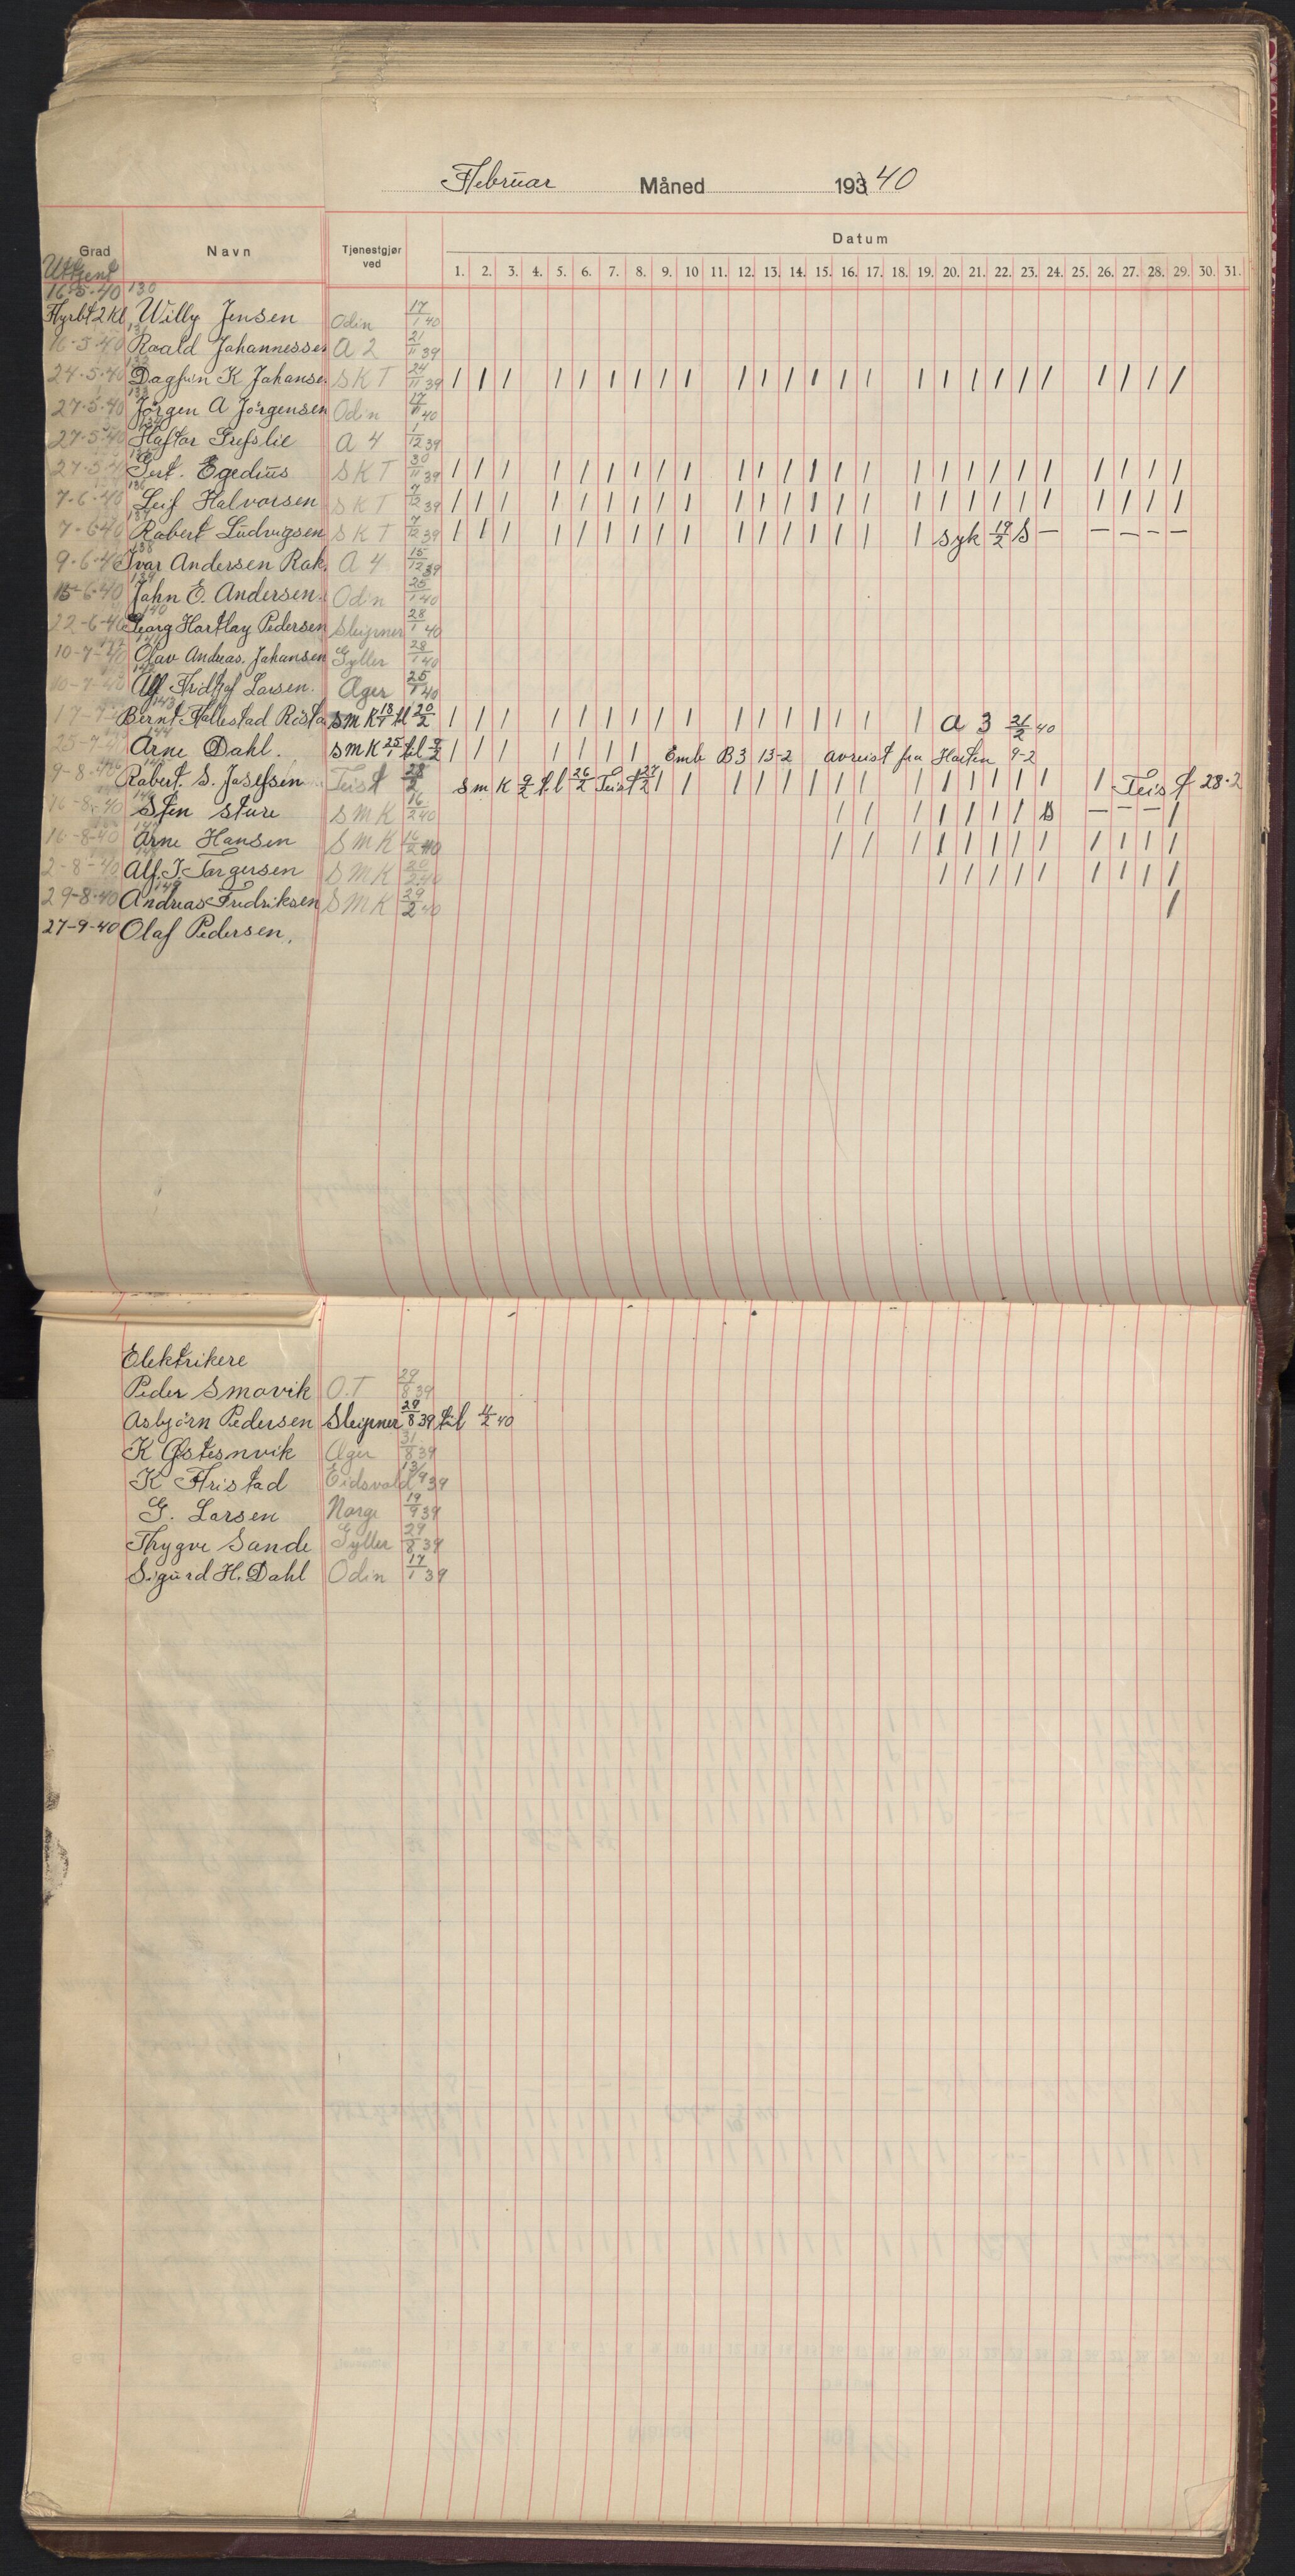 Februar Måned 193 40
Grad Navn Tjenestgjør ved Datum
1. 2. 3. 4. 5. 6. 7. 8. 9. 10 11. 12. 13. 14. 15. 16. 17. 18. 19. 20. 21. 22. 23. 24. 25. 26. 27. 28. 29. 30. 31.
Uttjent
16-5-40 130
Fyrbt 2 Kl Willy Jensen Odin 17/1 40
16-5-40 131 Roald Johannessen A 2 21/11 39
24-5-40 132 Dagfin K Johanse. S K T 24/11 39 / / / / / / / / / / / / / / / / / / / / / / / / /
27-5-40 133 Jörgen A Jörgensen Odin 17/1 40
27-5-40 Haftor Grefslie A 4 1/12 39
27-5-4 Gert. Egedius S K T 30/11 39 / / / / / / / / / / / / / / / / / / / / / / / / /
7-6-40 136 Leif Halvorsen S K T 7/12 39 / / / / / / / / / / / / / / / / / / / / / / / / /
7-6-40 137 Robert Ludvigsen S K T 7/12 39 / / / / / / / / / / / / / / / / syk 19/2 S — — — — —
9-6-40 138 Ivar Andersen Rak. A 4 15/12 39
15-6-40 139 John E. Andersen. Odin 25/1 40
22-6-40 140 Georg Hartlay Pedersen Sleipner 28/1 40
10-7-40 141 Olav Andreas. Johansen Gyller 28/1 40
10-7-40 142 Alf Fridtjof Larsen. Æger 25/1 40
143 Bernt Hallestad Rösta S M K 18/1 til 20/2 / / / / / / / / / / / / / / / / A 3 21/2 40
25-7-40 144 Arne Dahl. S M K 25/1 til 9/2 / / / / / / / Emb B 3 13-2 avreist fra Horten 9-2
9-8-40 Robert. S. Josefsen Teist 28/2 S M K 9/2 til 26/2 Teist 27/2 / / / / / / / / / / / / / / / Teist 28-2
16-8-40 Sten Sture S M K 16/2 40 / / / / / / / S — — — /
16-8-40 Arne Hansen S M K 16/2 40 / / / / / / / / / / / /
2-8-40 Alf. J. Torgersen S M K 20/2 40 / / / / / / / / /
29-8-40 149 Andreas Fredriksen S M K 29/2 40 /
27-9-40 Olaf Pedersen.
Elektrikere
Peder Smovik O.T 29/8 39
Asbjörn Pedersen Sleipner 29/8 39 til 4/2 40
K Østesnvik Æger 31/8 39
K Fristad Eidsvold 13/9 39
G. Larsen Norge 19/9 39
Thrygve Sande Gyller 29/8 39
Sigurd H. Dahl Odin 17/1 39